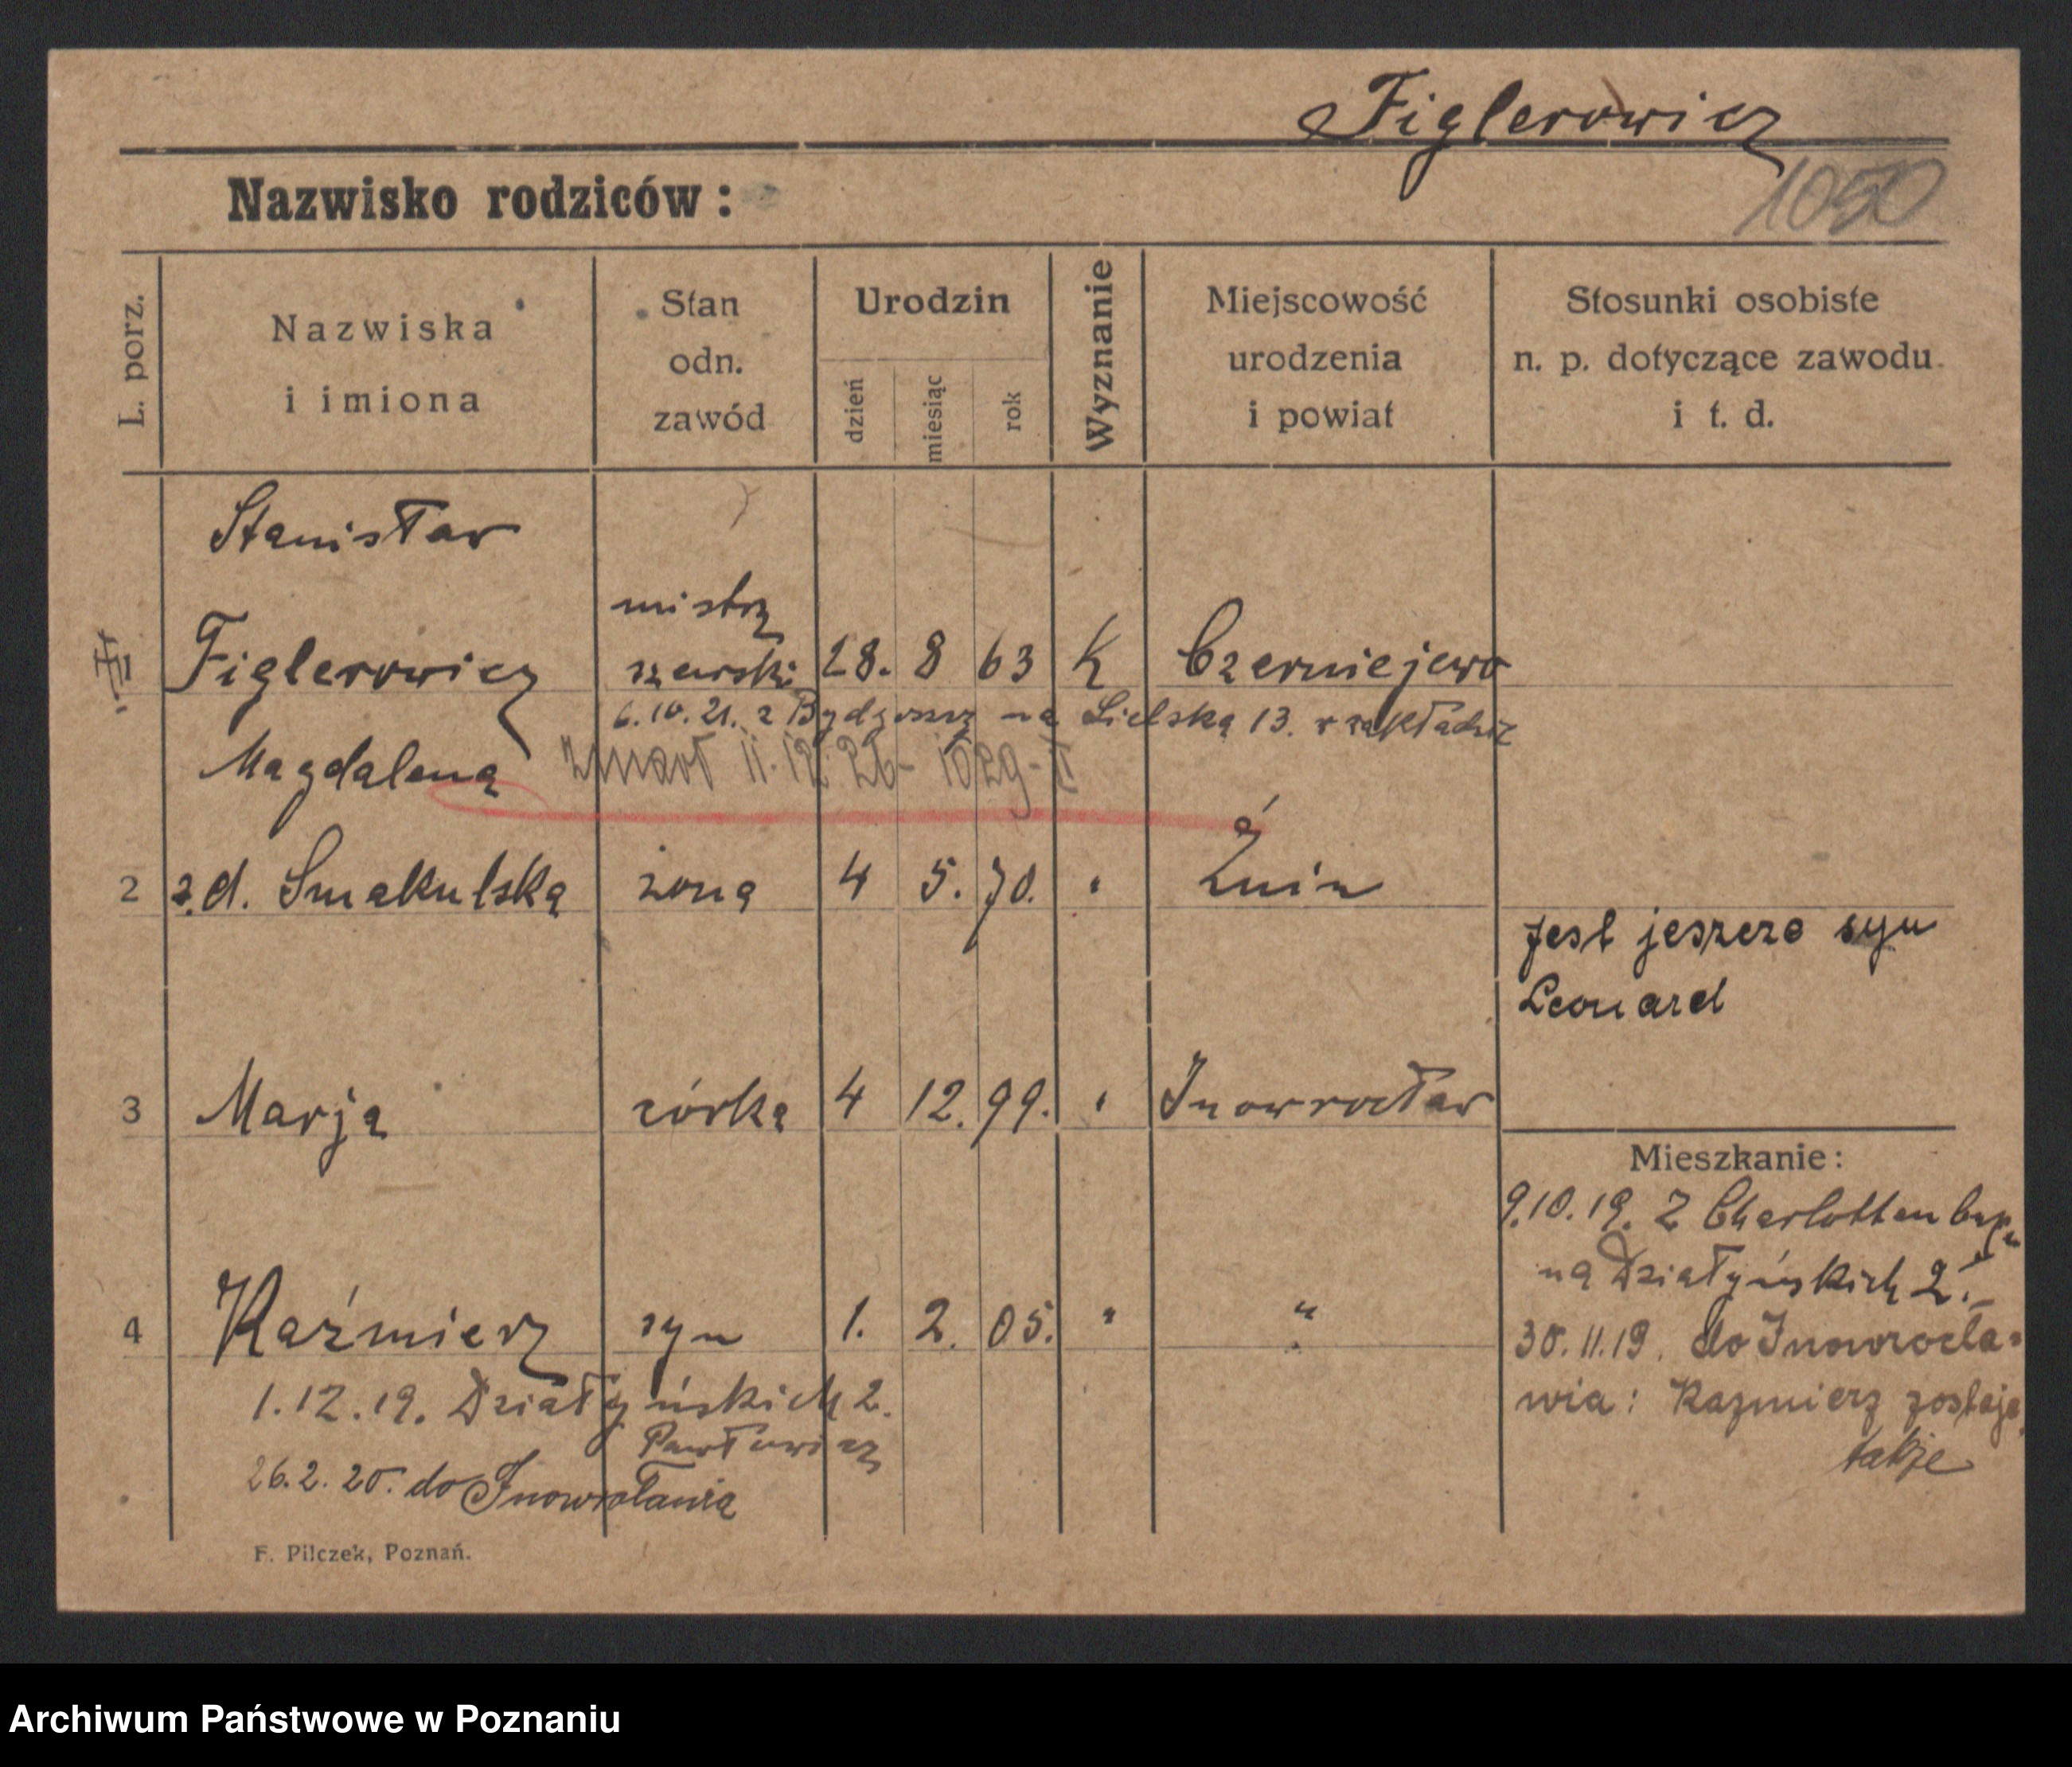 Figlerowicz
Nazwisko rodziców:
1050
L. porz.
Nazwiska
i imiona
Stan
odn.
zawód
Urodzin
dzień
miesiąc
rok
Wyznanie
Miejscowość
urodzenia
i powiat
Stosunki osobiste
n. p. dotyczące zawodu
i t. d.
Stanisław
mistrz
Figlerowicz szewski 28. 8 63 K Czerniejewo
6.10.21. z Bydgoszcz na 13. w zakładzie
Magdalena zmarł 11.12.26-
2 z.d. Smakulska żona 4 5. 70. " Żnin
Jest jeszcze syn
Leonard
3 Marja córka 4 12. 99. " Inowrocław
Mieszkanie:
9.10.19. Z Charlottenburga
na Działyńskich 2.
4 Kaźmierz syn 1. 2. 05. " "
30.11.19. do Inowrocła-
wia: Kazmierz zostaje
takje
1.12.19. Działyńskich 2.
Pawłowicz
26.2.20. do Inowrocławia
F. Pilczek, Poznań.
Archiwum Państwowe w Poznaniu